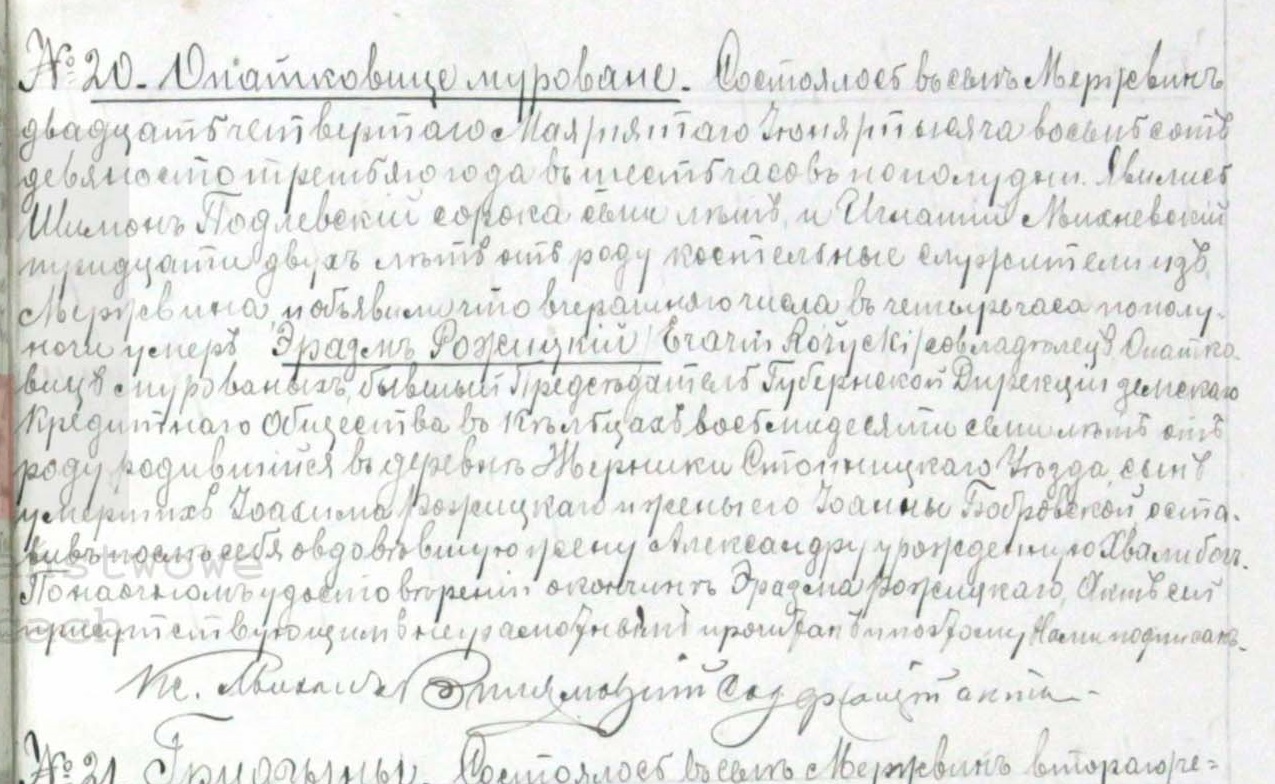 № 20. Опатковице мурованe. Состоялось въ селѣ Мержвинѣ
двадцать четвертаго Мая/пятаго Іюня/тысяча восемьсотъ
девяносто третьяго года въ шесть часовъ пополудни. Явились
Шимонъ Подлевскій сорока семи лѣтъ, и Игнатій Михневскій
тридцати двухъ лѣтъ отъ роду костельные служители изъ
Мержвина, и объявили что вчерашняго числа въ четыре часа пополу-
ночи умеръ Эразмъ Рожицкій /Erazm Rożycki/ совладѣлецъ Опатко-
вицъ мурованыхъ, бывшый Предсѣдатель Губернской Дирекціи земскаго
Кредитнаго Общества въ Кѣльцахъ восьмидесяти семи лѣтъ отъ
роду родившійся въ деревнѣ Жерники Стопницкаго Уѣзда, сынъ
умершихъ Іоахима Рожицкаго и жены его Іоанны Бобровской, оста-
вивъ послѣ себя овдовѣвшую жену Александру урожденную Хвалибогъ.
По наочномъ удостовѣреніи о кончинѣ Эразма Рожицкаго, Актъ сей
присутствующимъ неграмотнымъ прочитанъ и поэтому Нами подписанъ.
Кс. содержащій акты
№ 21 Состоялось въ селѣ Мержвинѣ втораго/че=
stwowe
ach